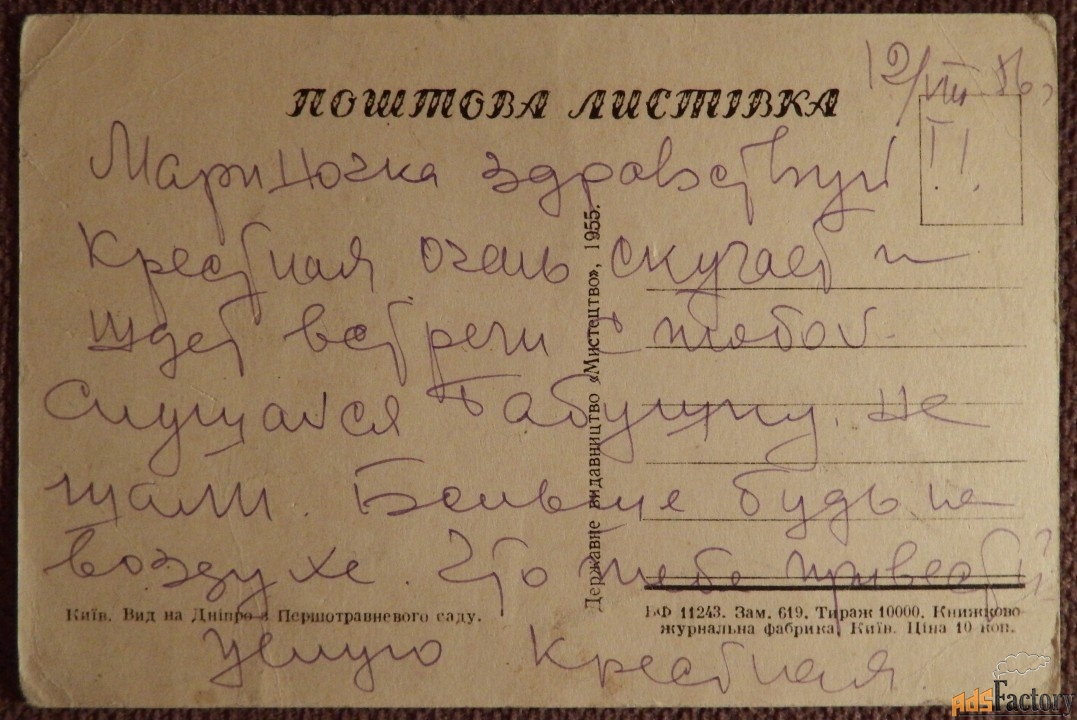 12/VIII 56
ПОШТОВА ЛИСТІВКА
Марицючка здравствуй
Крестная очень скучает и
ждет встречи с тобой.
Слушайся Бабушку. Не
шали. Больше будь на
воздухе. Что тебе привести?
Целую Крестная.
Державне видавництво «Мистецтво», 1955.
Київ. Вид на Дніпро з Першотравневого саду.
БФ 11243. Зам. 619. Тираж 10000. Книжково-
журнальна фабрика, Київ. Ціна 10 коп.
AdsFactory